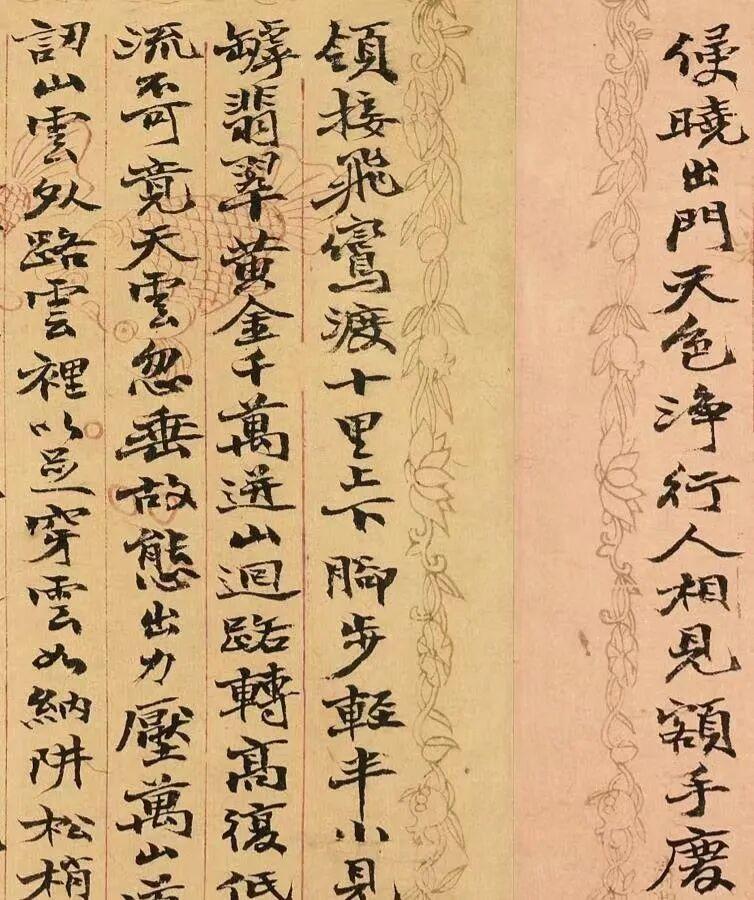 侵曉出門天色淨行人相見額手慶
領接飛鸞渡十里上下腳步輕半小見
罅翡翠黃金千萬迸山迴路轉高復低
流不可竟天雲忽垂故態出力壓萬山
認山雲外路雲裡以足穿雲如納阱松梢